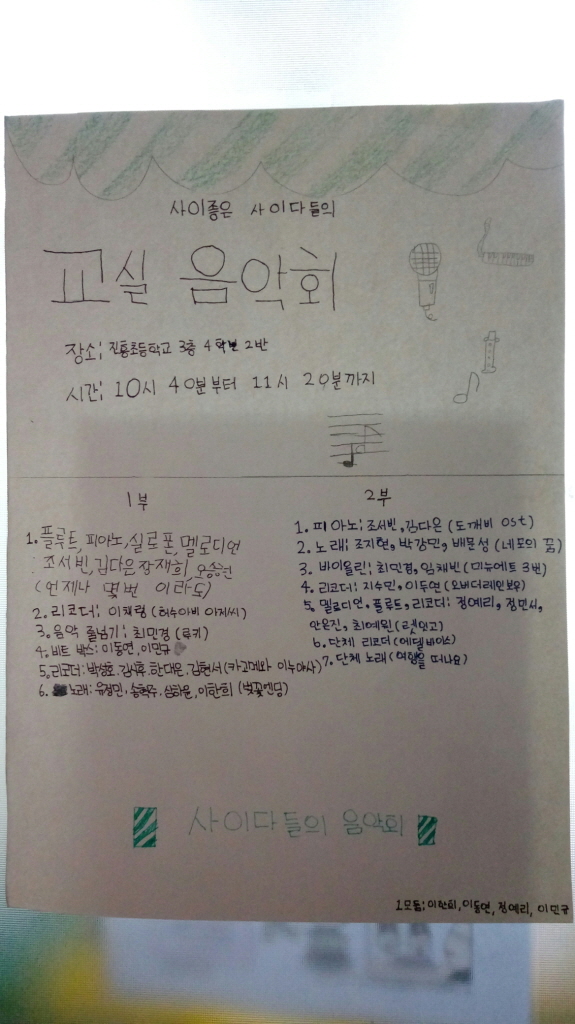 사이좋은 사이다들의
교실 음악회
장소: 진흥초등학교 3층 4학년 2반
시간: 10시 40분부터 11시 20분까지
1부
1. 플루트, 피아노, 실로폰, 멜로디언
: 조서빈, 김다은, 장재희,
(언제나 몇번 이라도)
2. 리코더: 이채령 (허수아비 아저씨)
3. 음악 줄넘기: 최민경 (루키)
4. 비트 박스: 이동연, 이민규
5. 리코더: 박성호, 김시후, 한대은, 김현서 (카고메와 이누야샤)
6. 노래: 유정민, 송혁주, 심하윤, 이한희 (벚꽃엔딩)
2부
1. 피아노: 조서빈, 김다은 (도깨비 ost)
2. 노래: 조지현, 박강민, 배문성 (네모의 꿈)
3. 바이올린: 최민경, 임채빈 (미뉴에트 3번)
4. 리코더: 지수민, 이두연 (오버더레인보우)
5. 멜로디언, 플루트, 리코더: 정예리, 정민서,
안윤진, 최예원 (렛잇고)
6. 단체 리코더 (에델바이스)
7. 단체 노래 (여행을 떠나요)
사이다들의 음악회
1모둠: 이한희, 이동연, 정예리, 이민규